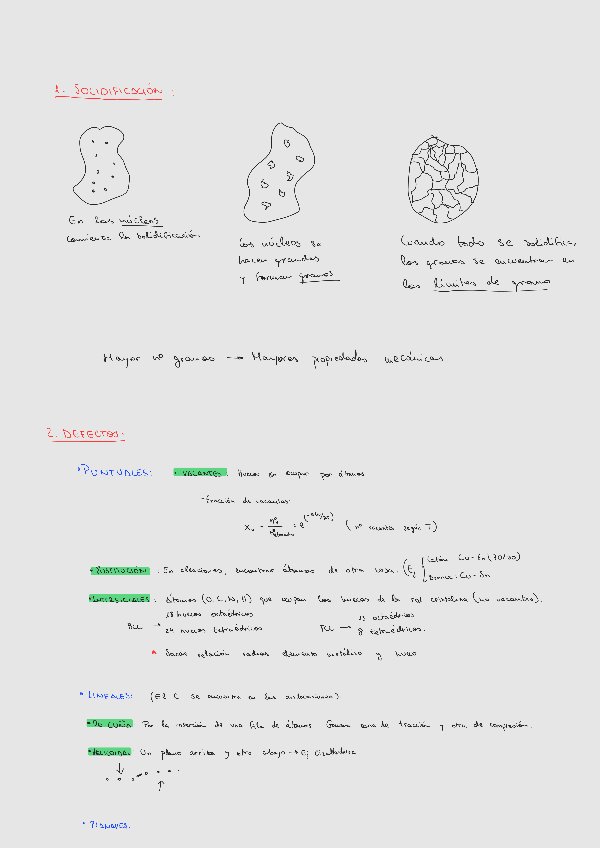 1. SOLIDIFICACIÓN:
En los núcleos
comienza la solidificación.
Los núcleos se
hacen grandes
y forman granos
Cuando todo se solidifica,
los granos se encuentran en
los límites de grano
Mayor nº granos → Mayores propiedades mecánicas
2. DEFECTOS:
• PUNTUALES:
• VACANTES: Huecos sin ocupar por átomos
- Fracción de vacantes:
(nº vacantes según T)
• SUSTITUCIÓN: En aleaciones, encontrar átomos de otra cosa. (Ej
Latón Cu-Zn (70/30)
Bronce. Cu-Sn
• INTERSTICIALES: Átomos (O, C, N, H) que ocupan los huecos de la red cristalina (no vacantes).
BCC → 18 huecos octaédricos
24 huecos tetraédricos
FCC → 13 octaédricos
8 tetraédricos.
relación radios elemento y hueco
• LINEALES: (El C se encuentra en las dislocaciones)
• DE CUÑA: Por la inserción de una fila de átomos. Generan zona de tracción y otra de compresión.
Un plano arriba y otro abajo → Ej Cizalladura
• PLANARES: